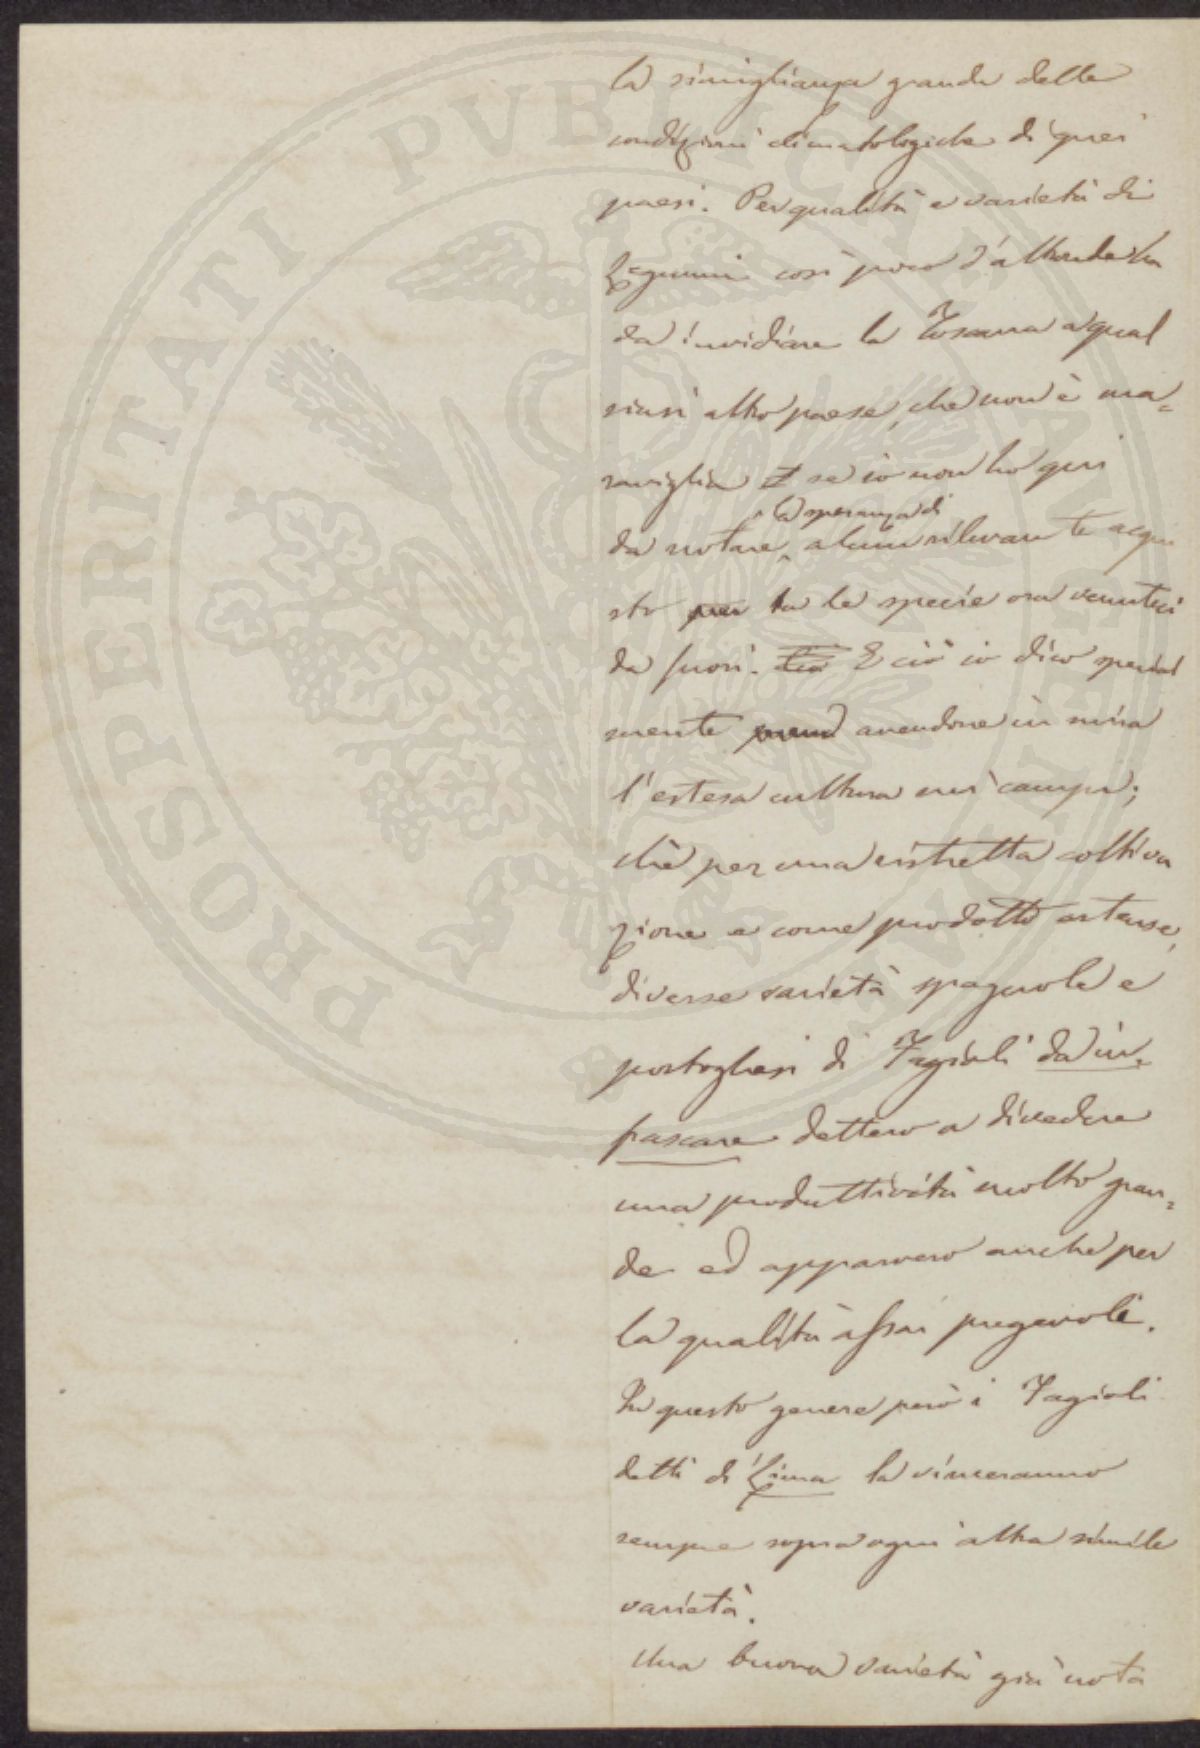 la simiglianza grande delle
condizioni climatologiche di quei
paesi. Per qualità e varietà di
Legumi così poco d'altronde ha
da invidiare la Toscana a qual
siasi altro paese, che non è ma=
raviglia se io non ho qui
la speranza di
da notare, alcun rilevante acqui
sto per tra le specie ora venuteci
da fuori. E ciò io dico special
mente avendone in mira
l'estesa cultura nei campi;
chè per una ristretta coltiva
zione e come prodotti ortensi,
diverse varietà spagnole e
portoghesi di Fagioli da in=
frascare dettero a divedere
una produttività molto gran=
de ed apparvero anche per
la qualità assai pregevoli.
In questo genere però i Fagioli
detti di Lima la vinceranno
sempre sopra ogni altra simile
varietà.
Una buona varietà già nota
PROSPERITATI PVBLICAE AVGENDAE